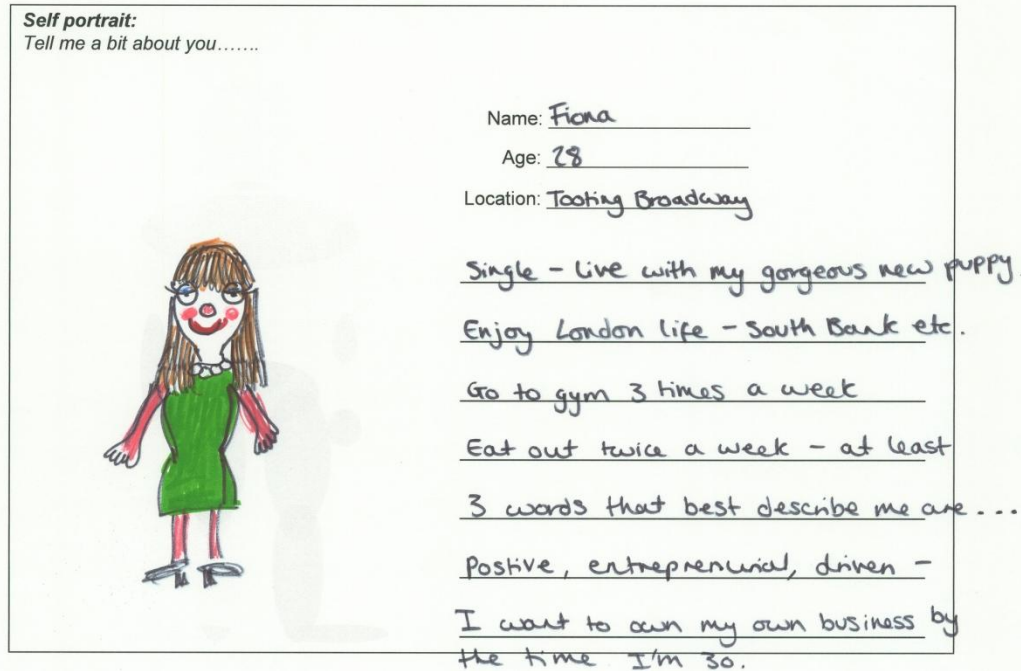 Self portrait:
Tell me a bit about you…….
Name: Fiona
Age: 28
Location: Tooting Broadway
Single - Live with my gorgeous new puppy.
Enjoy London life - South Bank etc.
Go to gym 3 times a week
Eat out twice a week - at least
3 words that best describe me are...
Postive, entreprenurial, driven -
I want to own my own business by
the time I'm 30.